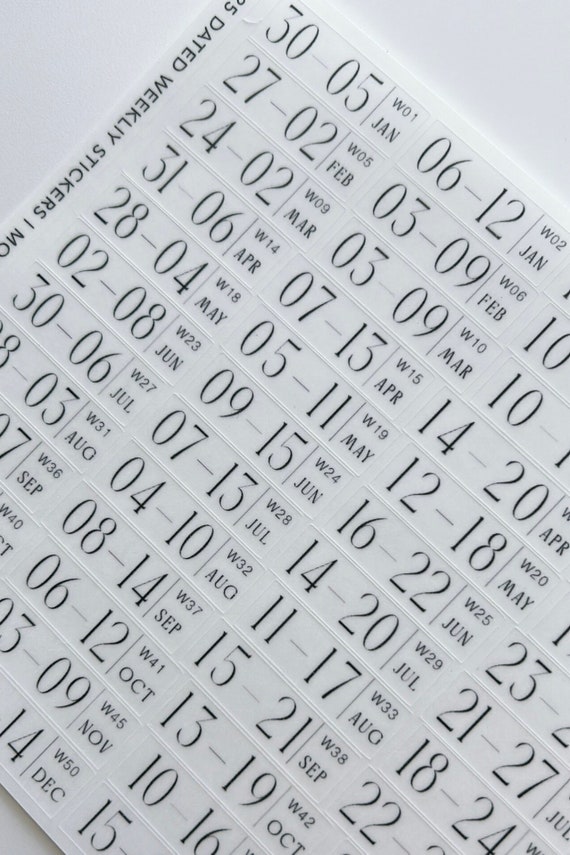 25 DATED WEEKLIY STICKERS | MO
30–05 W01 JAN
06–12 W02 JAN
27–02 W05 FEB
03–09 W06 FEB
10
24–02 W09 MAR
03–09 W10 MAR
10–
31–06 W14 APR
07–13 W15 APR
14–20 APR
28–04 W18 MAY
05–11 W19 MAY
12–18 W20 MAY
02–08 W23 JUN
09–15 W24 JUN
16–22 W25 JUN
23
30–06 W27 JUL
07–13 W28 JUL
14–20 W29 JUL
21–27 JUL
28–03 W31 AUG
04–10 W32 AUG
11–17 W33 AUG
18–24
07 W36 SEP
08–14 W37 SEP
15–21 W38 SEP
22–
W40
06–12 W41 OCT
13–19 W42 OCT
03–09 W45 NOV
10–16
14 W50 DEC
15–